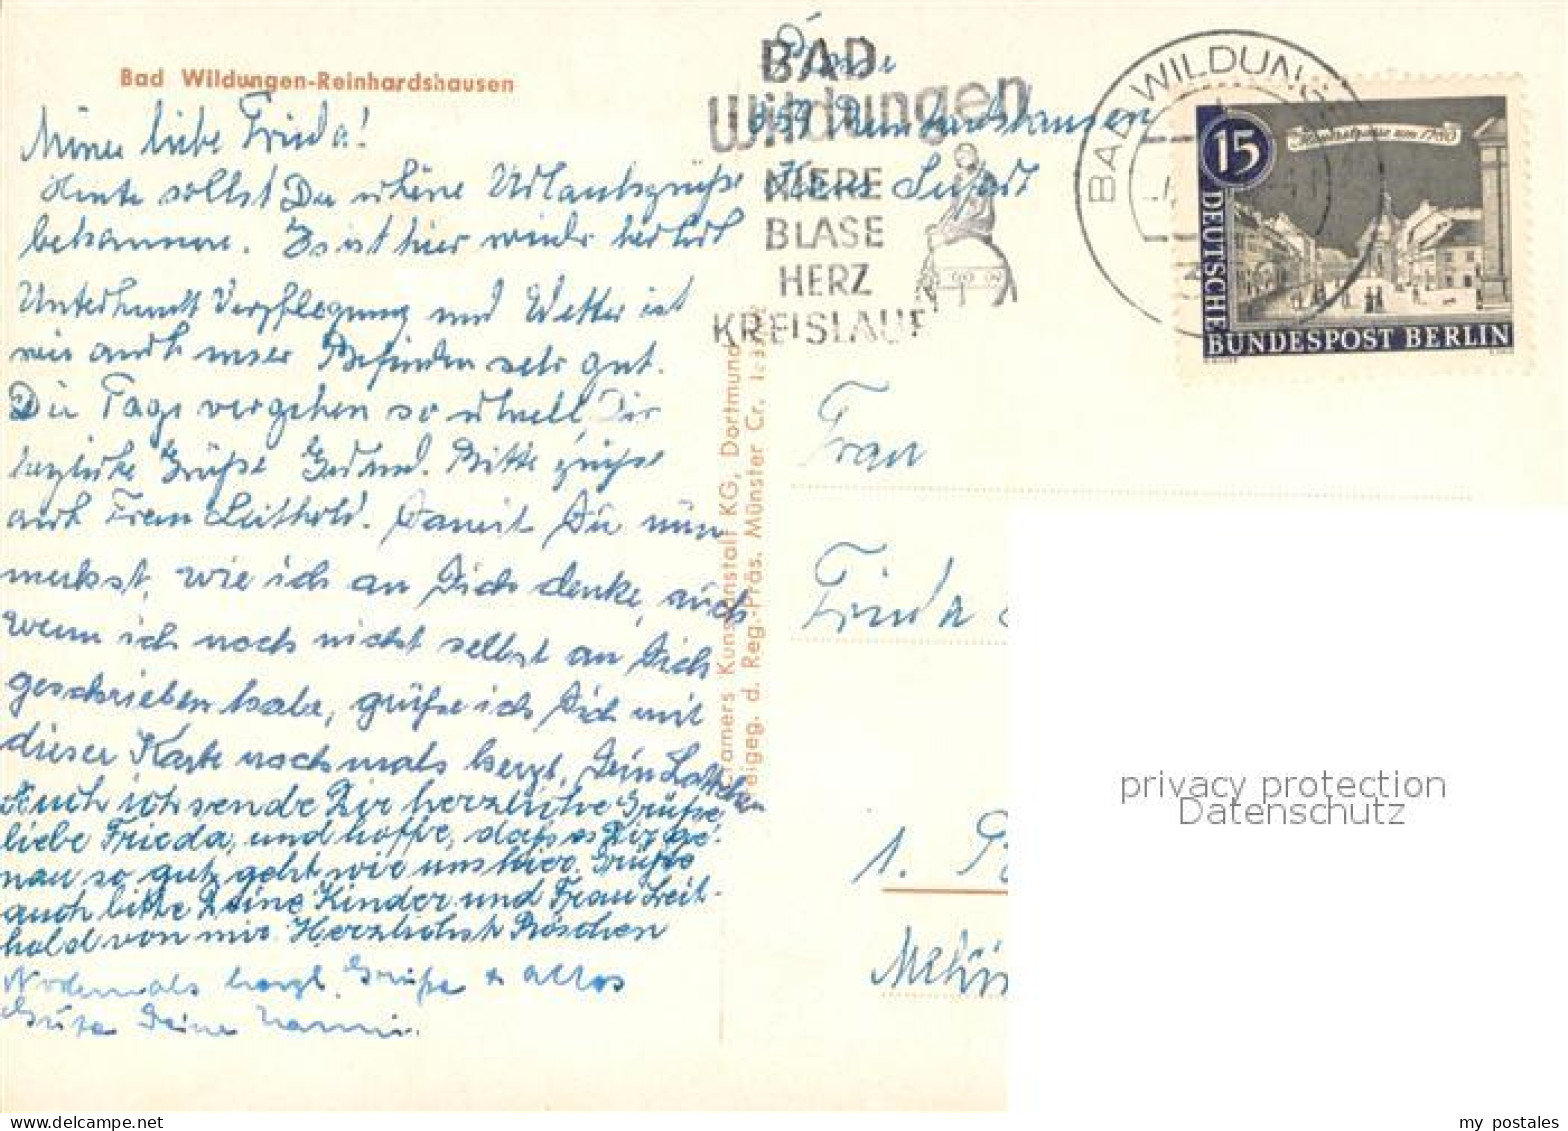 Bad Wildungen-Reinhardshausen
Meine liebe Frieda!
Heute sollst Du schöne Urlaubsgrüße
bekommen. Es ist hier wieder
Unterkunft Verpflegung und Wetter ist
wie auch unser Befinden sehr gut.
Die Tage vergehen so schnell, Dir
herzliche Grüße Gertrud. Bitte grüße
auch Frau Leithold. Damit Du nun
merkst, wie ich an Dich denke, auch
wenn ich noch nicht selbst an Dich
geschrieben habe, grüße ich Dich mit
dieser Karte nochmals herzl. Dein Lottchen
Auch ich sende Dir herzliche Grüße,
liebe Frieda, und hoffe, daß es Dir ge-
nau so gut geht wie uns hier. Grüße
auch bitte Deine Kinder und Frau Leit-
hold von mir. Herzlichst Röschen
Nochmals herzl. Grüße & alles
Gute Deine Hanni.
Cramers Kunstanstalt KG, Dortmund
Freigeg. d. Reg.-Präs. Münster Cr.
BAD
Wildungen
NIERE
BLASE
HERZ
KREISLAUF
Reinhardshausen
Haus
BAD WILDUNGEN
15
DEUTSCHE
BUNDESPOST BERLIN
um 1780
Frau
Frieda
1.
privacy protection
Datenschutz
my postales